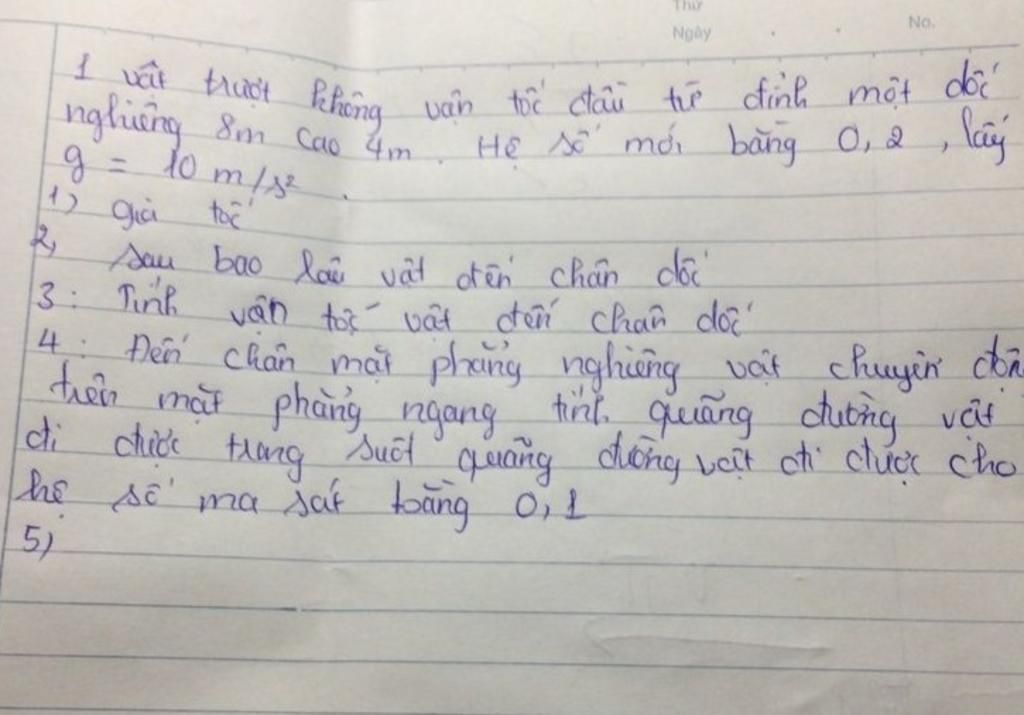 Thứ
Ngày . . No.
1 vật trượt không vận tốc đầu từ đỉnh một dốc
nghiêng 8m cao 4m. Hệ số mới bằng 0,2, lấy
g = 10 m/s².
1) gia tốc
2, sau bao lâu vật đến chân dốc
3: Tính vận tốc vật đến chân dốc
4: Đến chân mặt phẳng nghiêng vật chuyển độn
trên mặt phẳng ngang tính quãng đường vật
đi được trong suốt quãng đường vật đi được cho
hệ số ma sát bằng 0,1
5)